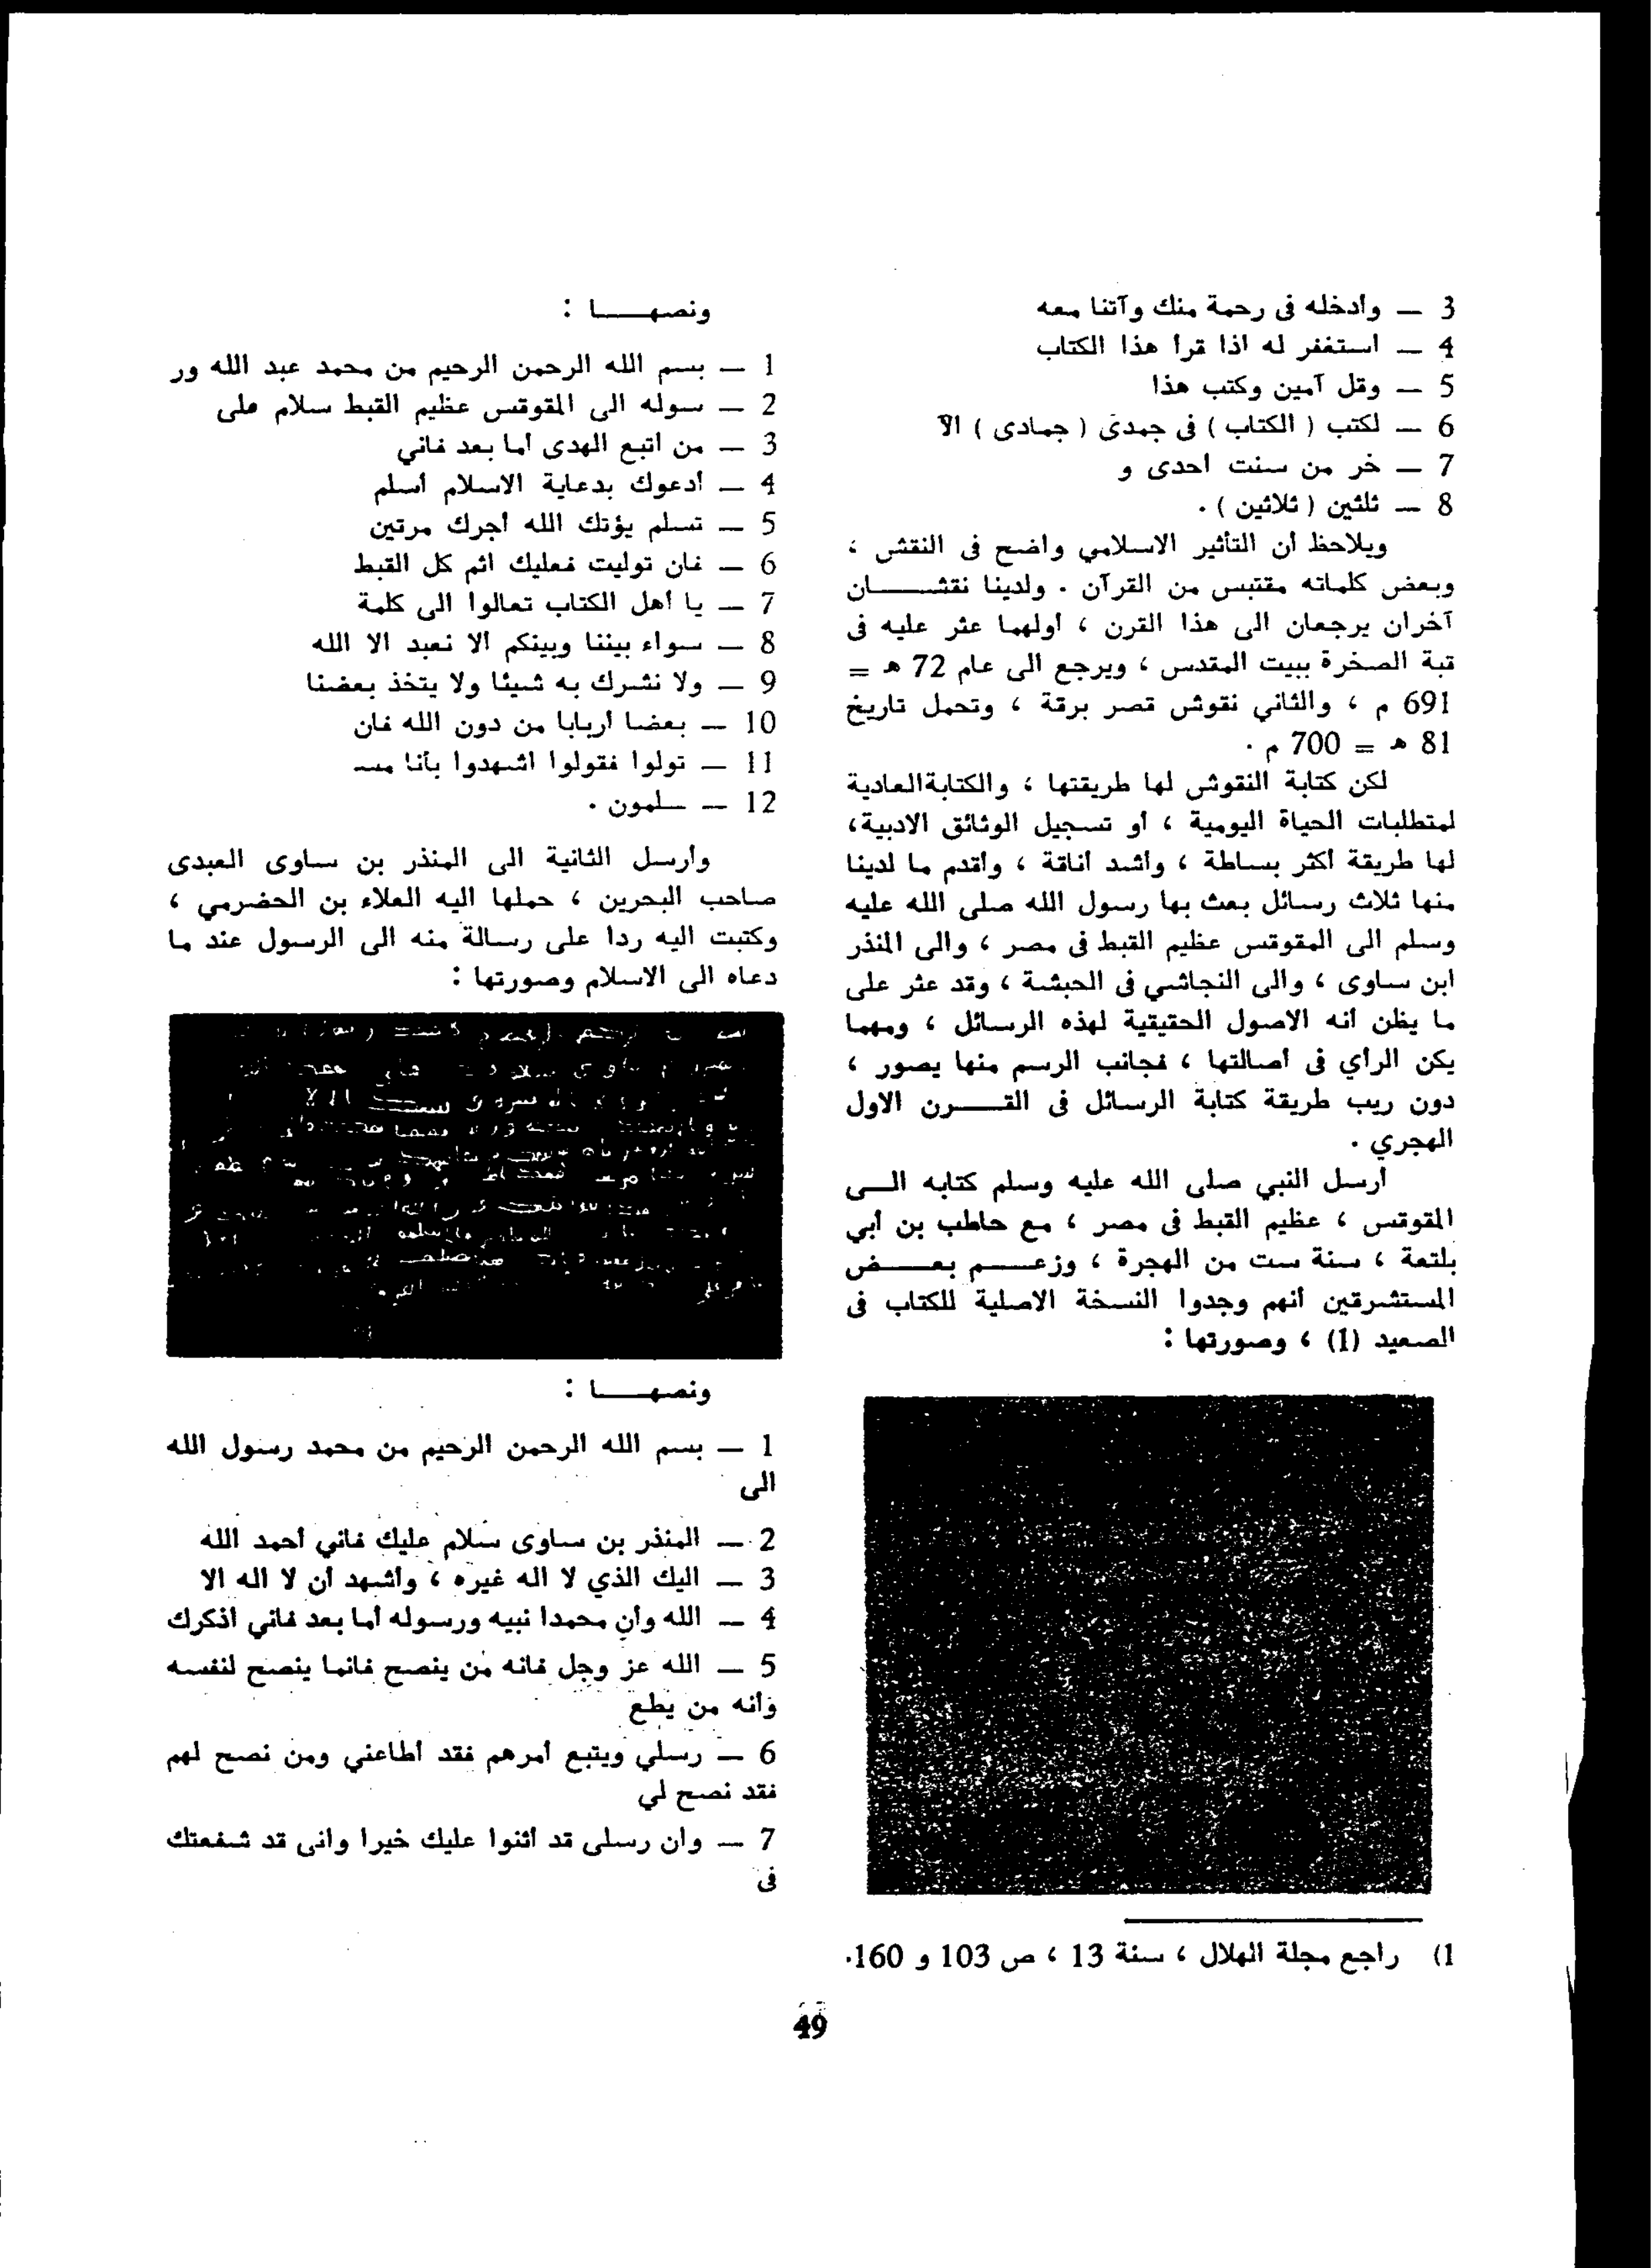 3 — وأدخله فى رحمة منك وآتنا معه
4 — استغفر له اذا قرأ هذا الكتاب
5 — وقل آمين وكتب هذا
6 — لكتب ( الكتاب ) فى جمدى ( جمادى ) الآ
7 — خر من سنت احدى و
8 — ثلثين ( ثلاثين ) .
ويلاحظ أن التأثير الاسلامي واضح فى النقش ،
وبعض كلماته مقتبس من القرآن . ولدينا نقشـــان
آخران يرجعان الى هذا القرن ، أولهما عثر عليه فى
قبة الصخرة ببيت المقدس ، ويرجع الى عام 72 هـ =
691 م ، والثاني نقوش قصر برقة ، وتحمل تاريخ
81 هـ = 700 م .
لكن كتابة النقوش لها طريقتها ، والكتابة العادية
لمتطلبات الحياة اليومية ، أو تسجيل الوثائق الادبية،
لها طريقة أكثر بساطة ، وأشد أناقة ، وأقدم ما لدينا
منها ثلاث رسائل بعث بها رسول الله صلى الله عليه
وسلم الى المقوقس عظيم القبط فى مصر ، والى المنذر
ابن ساوى ، والى النجاشي فى الحبشة ، وقد عثر على
ما يظن أنه الاصول الحقيقية لهذه الرسائل ، ومهما
يكن الرأي فى أصالتها ، فجانب الرسم منها يصور ،
دون ريب طريقة كتابة الرسائل فى القـــرن الاول
الهجري .
أرسل النبي صلى الله عليه وسلم كتابه الـــى
المقوقس ، عظيم القبط فى مصر ، مع حاطب بن أبي
بلتعة ، سنة ست من الهجرة ، وزعـــم بعـــض
المستشرقين أنهم وجدوا النسخة الاصلية للكتاب فى
الصعيد (1) ، وصورتها :
1) راجع مجلة الهلال ، سنة 13 ، ص 103 و 160.
ونصهـــا :
1 — بسم الله الرحمن الرحيم من محمد عبد الله ور
2 — سوله الى المقوقس عظيم القبط سلام على
3 — من اتبع الهدى أما بعد فاني
4 — أدعوك بدعاية الاسلام أسلم
5 — تسلم يؤتك الله أجرك مرتين
6 — فان توليت فعليك اثم كل القبط
7 — يا أهل الكتاب تعالوا الى كلمة
8 — سواء بيننا وبينكم الا نعبد الا الله
9 — ولا نشرك به شيئا ولا يتخذ بعضنا
10 — بعضا أربابا من دون الله فان
11 — تولوا فقولوا اشهدوا بأنا مسـ
12 — ـلمون .
وأرسل الثانية الى المنذر بن ساوى العبدى
صاحب البحرين ، حملها اليه العلاء بن الحضرمي ،
وكتبت اليه ردا على رسالة منه الى الرسول عند ما
دعاه الى الاسلام وصورتها :
ونصهـــا :
1 — بسم الله الرحمن الرحيم من محمد رسول الله
الى
2 — المنذر بن ساوى سلام عليك فاني أحمد الله
3 — اليك الذي لا اله غيره ، وأشهد أن لا اله الا
4 — الله وأن محمدا نبيه ورسوله أما بعد فاني أذكرك
5 — الله عز وجل فانه من ينصح فانما ينصح لنفسه
وأنه من يطع
6 — رسلي ويتبع أمرهم فقد أطاعني ومن نصح لهم
فقد نصح لي
7 — وان رسلى قد أثنوا عليك خيرا وانى قد شفعتك
فى
49